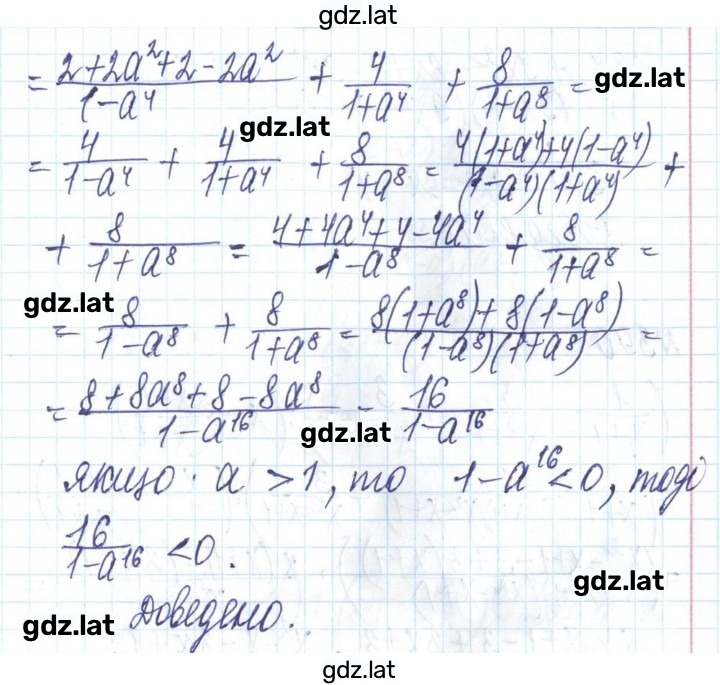 gdz.lat
= (2+2a²+2-2a²)/(1-a⁴) + 4/(1+a⁴) + 8/(1+a⁸) = gdz.lat
gdz.lat
= 4/(1-a⁴) + 4/(1+a⁴) + 8/(1+a⁸) = (4(1+a⁴)+4(1-a⁴))/((1-a⁴)(1+a⁴)) +
+ 8/(1+a⁸) = (4+4a⁴+4-4a⁴)/(1-a⁸) + 8/(1+a⁸) =
gdz.lat
= 8/(1-a⁸) + 8/(1+a⁸) = (8(1+a⁸)+8(1-a⁸))/((1-a⁸)(1+a⁸)) =
= (8+8a⁸+8-8a⁸)/(1-a¹⁶) = 16/(1-a¹⁶)
gdz.lat
якщо a > 1, то 1-a¹⁶<0, тоді
16/(1-a¹⁶) <0.
gdz.lat
gdz.lat Доведено.
gdz.lat